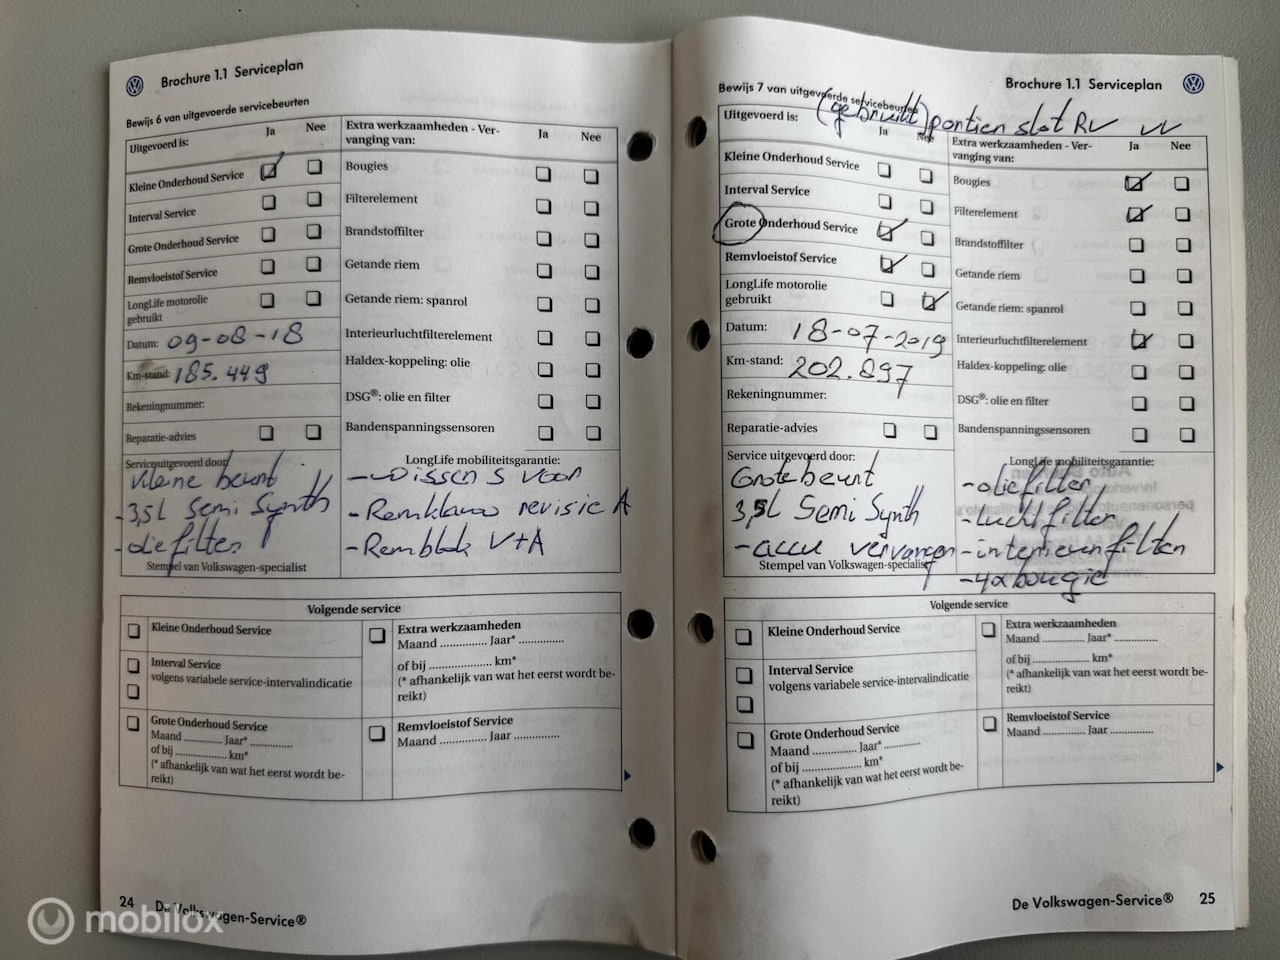 Brochure 1.1 Serviceplan
Bewijs 6 van uitgevoerde servicebeurten
Uitgevoerd is:
Ja
Nee
Kleine Onderhoud Service
Interval Service
Grote Onderhoud Service
Remvloeistof Service
LongLife motorolie
gebruikt
Datum: 09-08-18
Km-stand: 185.449
Rekeningnummer:
Reparatie-advies
Extra werkzaamheden - Ver-
vanging van:
Ja
Nee
Bougies
Filterelement
Brandstoffilter
Getande riem
Getande riem: spanrol
Interieurluchtfilterelement
Haldex-koppeling: olie
DSG®: olie en filter
Bandenspanningssensoren
Service uitgevoerd door:
kleine beurt
- 3,5L Semi Synth
- oliefilter
Stempel van Volkswagen-specialist
LongLife mobiliteitsgarantie:
- wissers voor
- Remklauw revisie A
- Remblok V+A
Volgende service
Kleine Onderhoud Service
Interval Service
volgens variabele service-intervalindicatie
Grote Onderhoud Service
Maand ............ Jaar* ..............
of bij .................. km*
(* afhankelijk van wat het eerst wordt be-
reikt)
Extra werkzaamheden
Maand ............... Jaar* ...............
of bij ..................... km*
(* afhankelijk van wat het eerst wordt be-
reikt)
Remvloeistof Service
Maand ............... Jaar ...............
24
De Volkswagen-Service®
mobilox
Brochure 1.1 Serviceplan
Bewijs 7 van uitgevoerde servicebeurten
(gebruikt) portier slot RV
Uitgevoerd is:
Ja
Nee
Kleine Onderhoud Service
Interval Service
Grote Onderhoud Service
Remvloeistof Service
LongLife motorolie
gebruikt
Datum: 18-07-2019
Km-stand: 202.897
Rekeningnummer:
Reparatie-advies
Extra werkzaamheden - Ver-
vanging van:
Ja
Nee
Bougies
Filterelement
Brandstoffilter
Getande riem
Getande riem: spanrol
Interieurluchtfilterelement
Haldex-koppeling: olie
DSG®: olie en filter
Bandenspanningssensoren
Service uitgevoerd door:
Grote beurt
3,5L Semi Synth
- accu vervangen
Stempel van Volkswagen-specialist
LongLife mobiliteitsgarantie:
- oliefilter
- luchtfilter
- interieurfilter
- 4x bougie
Volgende service
Kleine Onderhoud Service
Interval Service
volgens variabele service-intervalindicatie
Grote Onderhoud Service
Maand ............ Jaar* ............
of bij .................. km*
(* afhankelijk van wat het eerst wordt be-
reikt)
Extra werkzaamheden
Maand .............. Jaar* ..............
of bij .................. km*
(* afhankelijk van wat het eerst wordt be-
reikt)
Remvloeistof Service
Maand .............. Jaar ..............
De Volkswagen-Service®
25